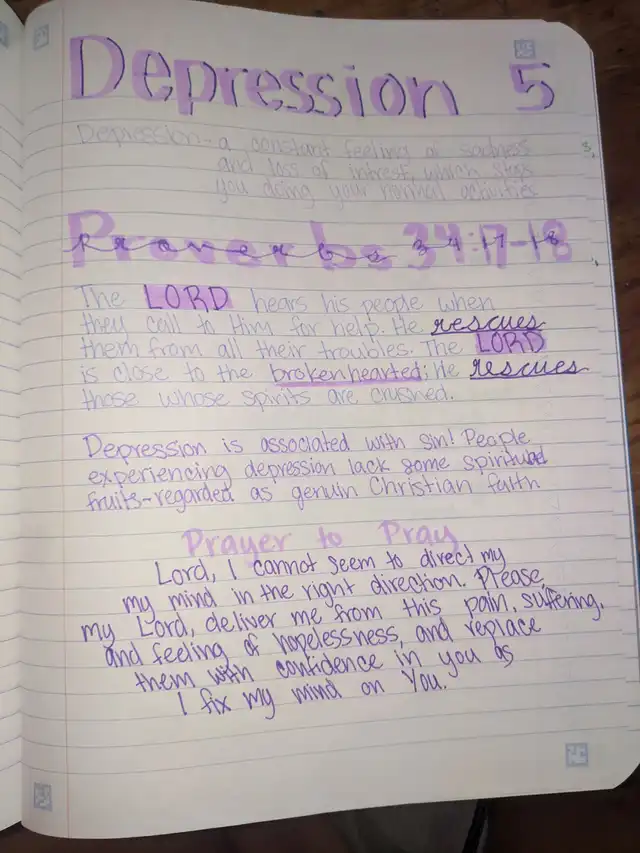 Depression 5
Depression - a constant feeling of sadness
and loss of intrest, which stops
you doing your normal activities
Proverbs 34:17-18
The LORD hears his people when
they call to Him for help. He rescues
them from all their troubles. The LORD
is close to the brokenhearted; He rescues
those whose spirits are crushed.
Depression is associated with sin! People
experiencing depression lack some spiritual
fruits-regarded as genuin Christian faith
Prayer to Pray
Lord, I cannot seem to direct my
my mind in the right direction. Please,
my Lord, deliver me from this pain, suffering,
and feeling of hopelessness, and replace
them with confidence in you as
I fix my mind on You.